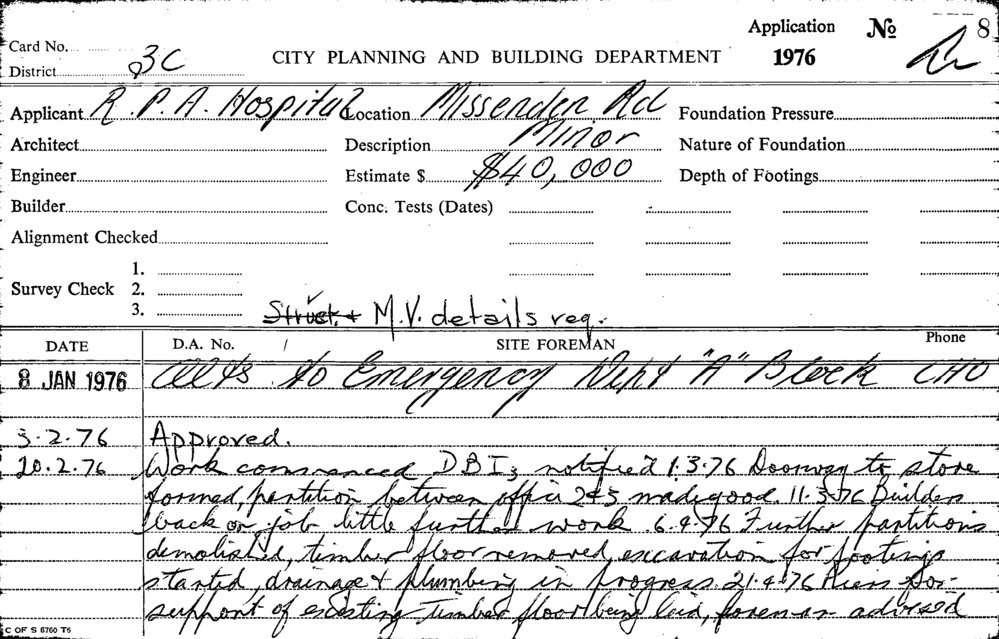 Application No 8
Card No.
1976
District 3C
CITY PLANNING AND BUILDING DEPARTMENT
Applicant R. P. A. Hospital Location Missenden Rd Foundation Pressure
Architect Description Minor Nature of Foundation
Engineer Estimate $ $40,000 Depth of Footings
Builder Conc. Tests (Dates)
Alignment Checked
1.
Survey Check 2.
3.
Struct. + M.V. details req.
DATE D.A. No. / SITE FOREMAN Phone
8 JAN 1976 Alts to Emergency Dept "A" Block
3.2.76 Approved.
10.2.76 Work commenced DBI, notified 1.3.76 Doorway to store
formed, partition between office 2+3 made good. 11.3.76 Builders
back on job little further work. 6.4.76 Further partitions
demolished, timber floor removed, excavation for footings
started, drainage & plumbing in progress. 21.4.76 Piers for
support of existing timber floor being laid, foreman advised
C OF S 6760 T6